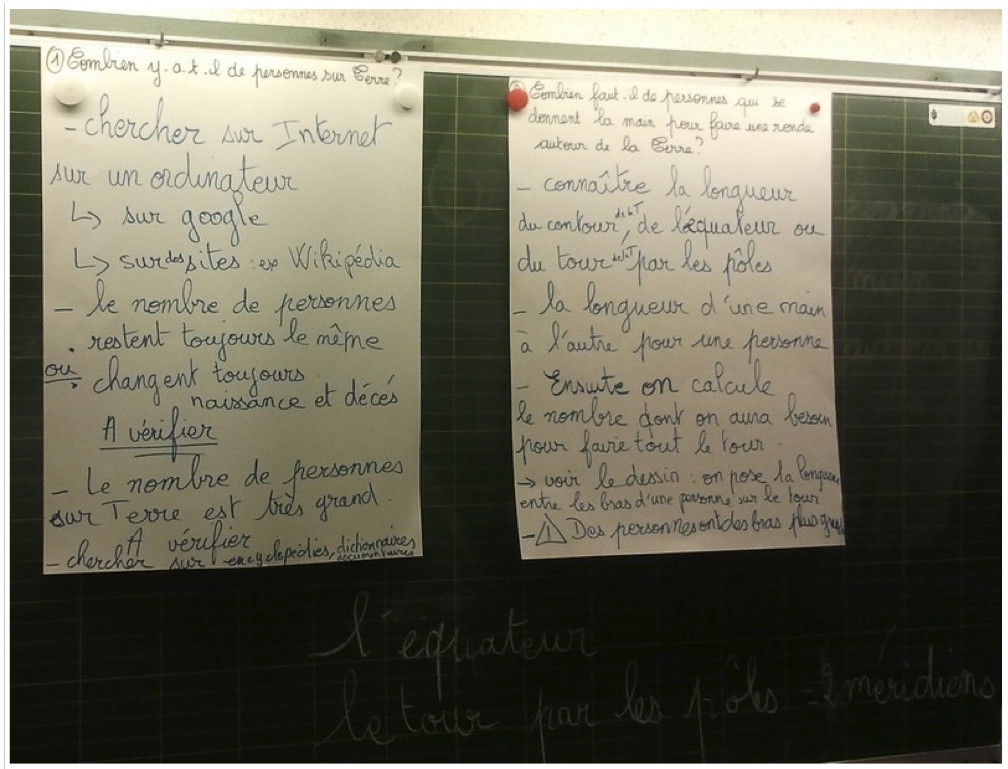 ① Combien y-a-t-il de personnes sur Terre?
- chercher sur Internet
sur un ordinateur
↳ sur google
↳ sur des sites : ex Wikipédia
- le nombre de personnes
. restent toujours le même
ou
. changent toujours
naissance et décés
A vérifier
- Le nombre de personnes
sur Terre est très grand.
A vérifier
- chercher sur encyclopédies, dictionnaires
documentaires
Combien faut-il de personnes qui se
donnent la main pour faire une ronde
autour de la Terre?
- connaître la longueur
du contour de la T, de l'équateur ou
du tour de la T par les pôles
- la longueur d'une main
à l'autre pour une personne
- Ensuite on calcule
le nombre dont on aura besoin
pour faire tout le tour.
→ voir le dessin : on pose la longueur
entre les bras d'une personne sur le tour
- ⚠ Des personnes ont des bras plus
l'équateur
le tour par les pôles - 2 méridiens